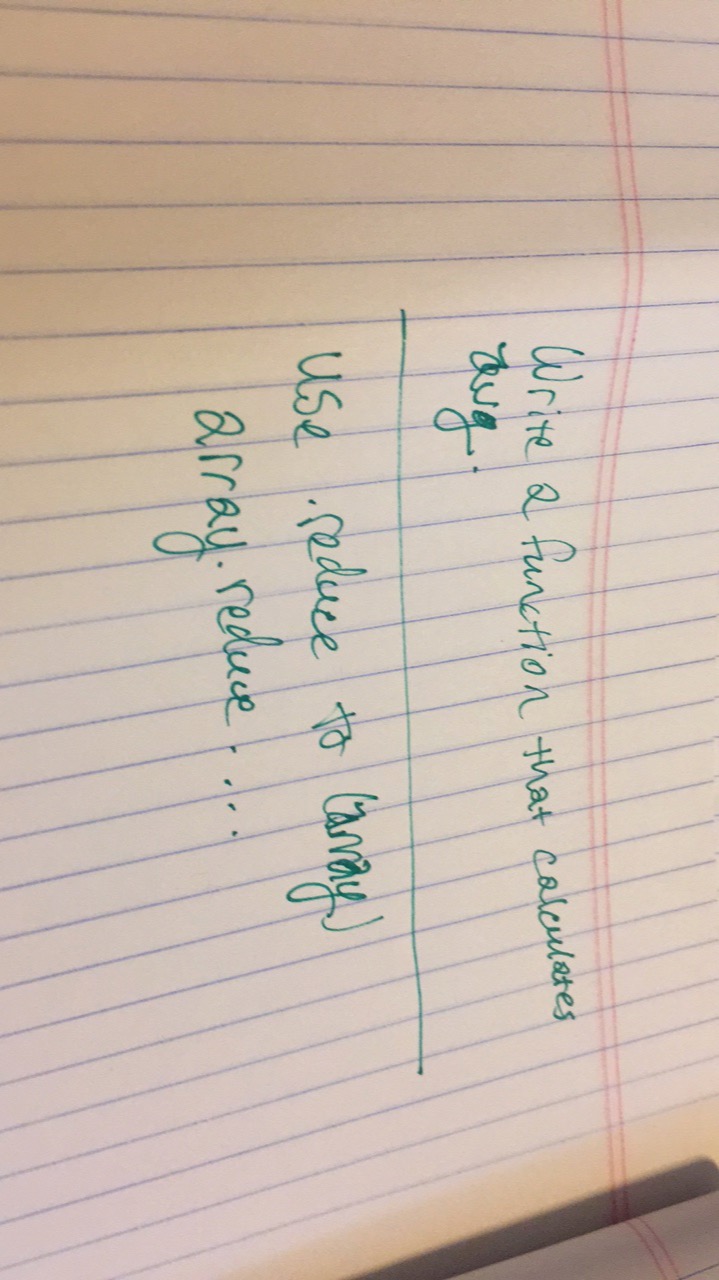 Write a function that calculates
avg.
use .reduce to (array)
array.reduce....